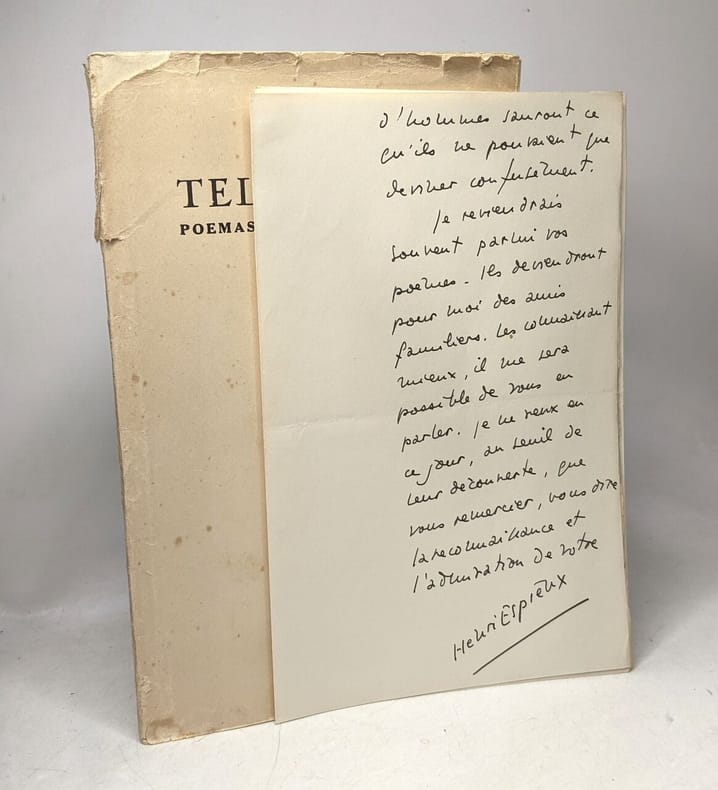 TEL
POEMAS
d'hommes sauront ce
qu'ils ne pouvaient que
deviner confusément.
Je reviendrais
souvent parmi vos
poèmes. Ils deviendront
pour moi des amis
familiers. Les connaissant
mieux, il me sera
possible de vous en
parler. Je ne veux en
ce jour, au seuil de
leur découverte, que
vous remercier, vous dire
la reconnaissance et
l'admiration de votre
Henri Espieux